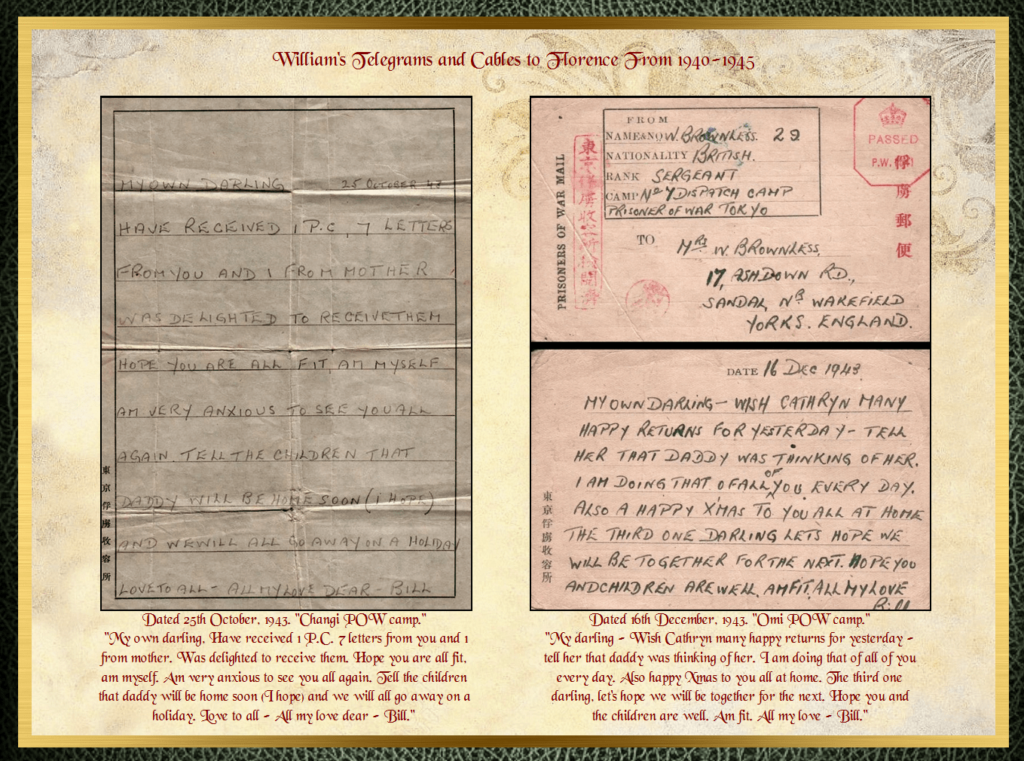 William's Telegrams and Cables to Florence From 1940-1945
MY OWN DARLING 25 OCTOBER 43
HAVE RECEIVED 1 P.C, 7 LETTERS
FROM YOU AND 1 FROM MOTHER
WAS DELIGHTED TO RECEIVE THEM
HOPE YOU ARE ALL FIT, AM MYSELF
AM VERY ANXIOUS TO SEE YOU ALL
AGAIN. TELL THE CHILDREN THAT
DADDY WILL BE HOME SOON (I HOPE)
AND WE WILL ALL GO AWAY ON A HOLIDAY
LOVE TO ALL - ALL MY LOVE DEAR - BILL
東京俘虜收容所
Dated 25th October. 1943. "Changi POW camp."
"My own darling. Have received 1 P.C. 7 letters from you and 1
from mother. Was delighted to receive them. Hope you are all fit,
am myself. Am very anxious to see you all again. Tell the children
that daddy will be home soon (I hope) and we will all go away on a
holiday. Love to all - All my love dear - Bill."
PRISONERS OF WAR MAIL
FROM
NAME & NO W. BROWNLESS. 29
NATIONALITY BRITISH.
RANK SERGEANT
CAMP Nº 7 DISPATCH CAMP
PRISONER OF WAR TOKYO
PASSED
P.W.
俘虜郵便
TO MRS W. BROWNLESS,
17, ASHDOWN RD.,
SANDAL NR WAKEFIELD
YORKS. ENGLAND.
DATE 16 DEC 1943
MY OWN DARLING - WISH CATHRYN MANY
HAPPY RETURNS FOR YESTERDAY - TELL
HER THAT DADDY WAS THINKING OF HER.
I AM DOING THAT OF ALL OF YOU EVERY DAY.
ALSO A HAPPY X'MAS TO YOU ALL AT HOME
THE THIRD ONE DARLING LETS HOPE WE
WILL BE TOGETHER FOR THE NEXT. HOPE YOU
AND CHILDREN ARE WELL, AM FIT, ALL MY LOVE
Bill
東京俘虜收容所
Dated 16th December. 1943. "Omi POW camp."
"My darling - Wish Cathryn many happy returns for yesterday -
tell her that daddy was thinking of her. I am doing that of all of you
every day. Also happy Xmas to you all at home. The third one
darling, let's hope we will be together for the next. Hope you and
the children are well. Am fit. All my love - Bill."